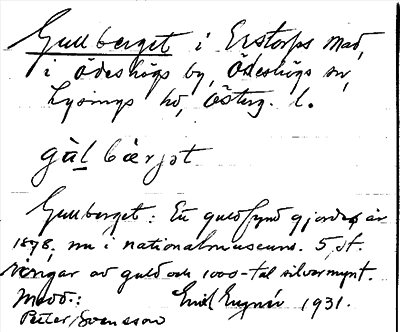 Gullberget i Erstorps mad,
i Ödeshögs by, Ödeshögs sn,
Lysings hd, Österg. l.
gàl bærjət
Gullberget: Ett guldfynd gjordes år
1878, nu i nationalmuseum. 5 st.
ringar av guld och 1000-tal silvermynt.
Medd.: Emil 1931.
Peter Svensson